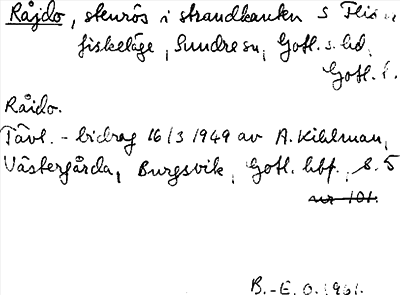 Råjdo, stenrös i strandkanten S
fiskeläge, Sundre sn, Gotl. s. hd,
Gotl. l.
Råido.
Tävl.-bidrag 16/3 1949 av A. Kihlman,
Västergårda, Burgsvik, Gotl. hbf., s. 5
nr 101.
B.-E. O. 1961.